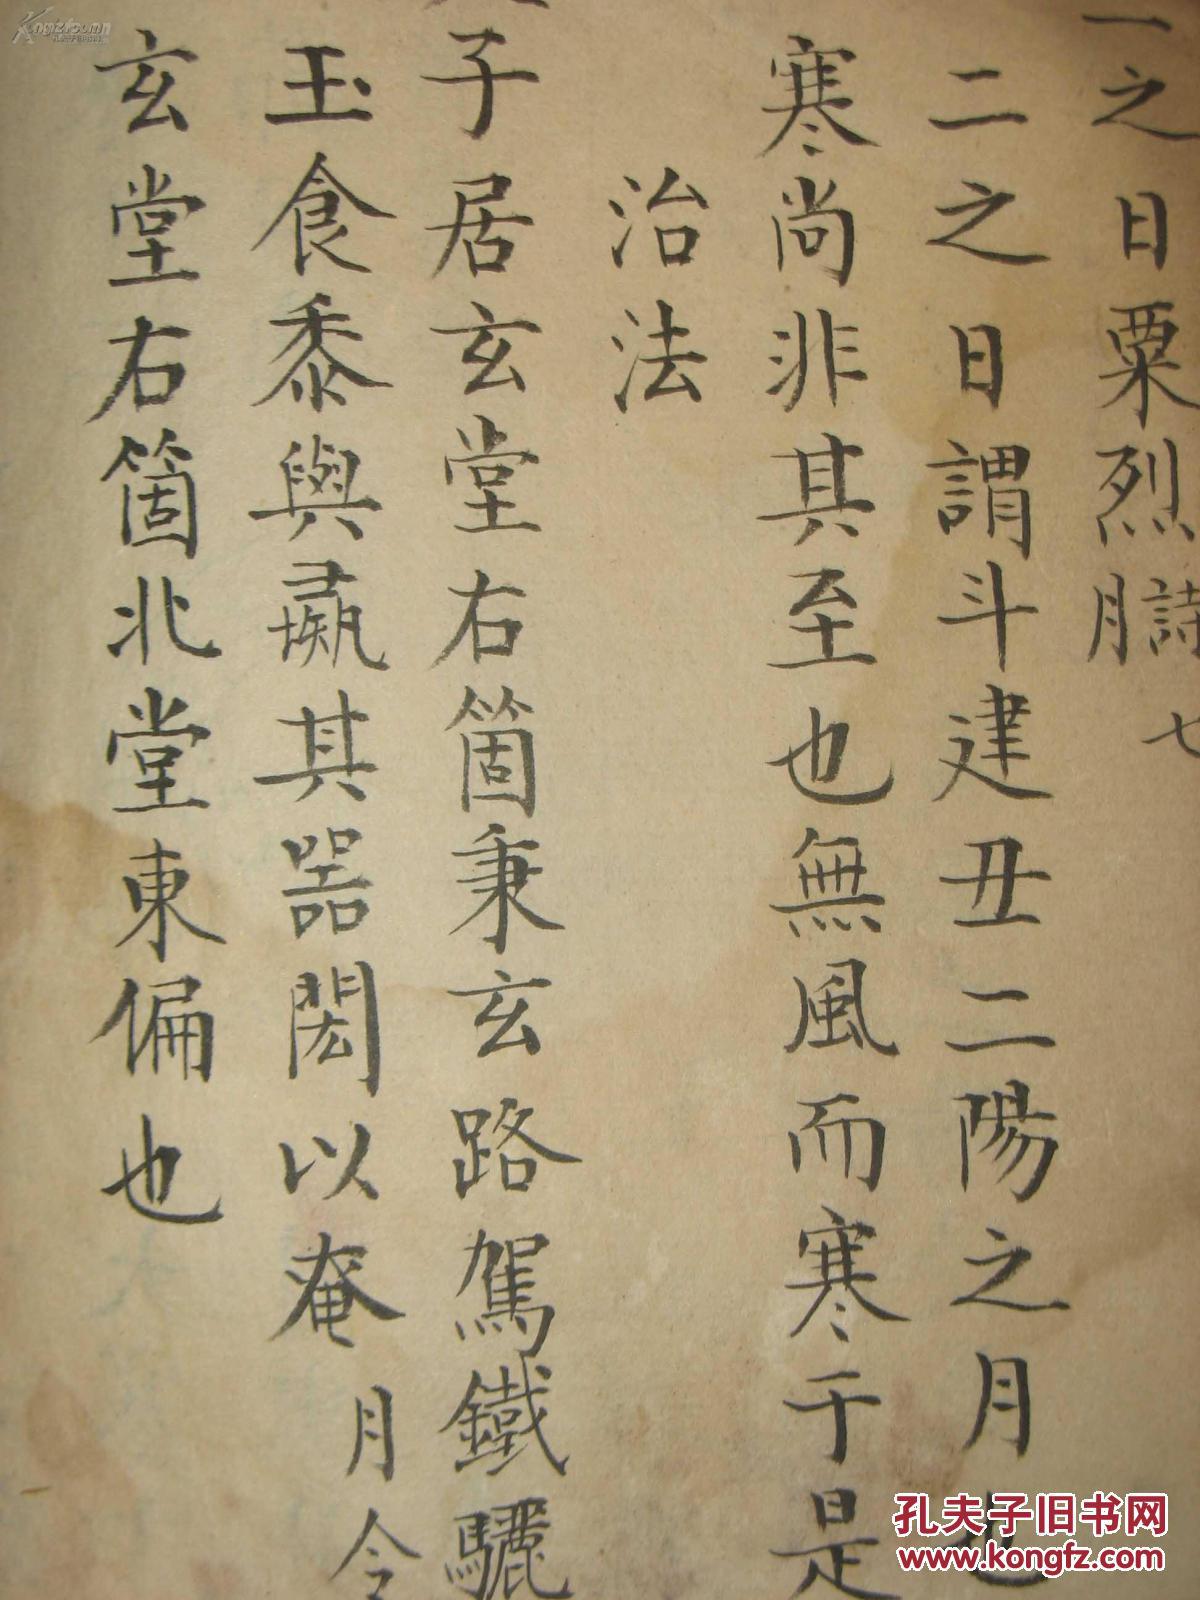 一之日栗烈詩七月
二之日謂斗建丑二陽之月也
寒尚非其至也無風而寒于是
治法
子居玄堂右箇乘玄路駕鐵驪
玉食黍與彘其器閎以奄月令
玄堂右箇北堂東偏也
孔夫子旧书网
www.kongfz.com